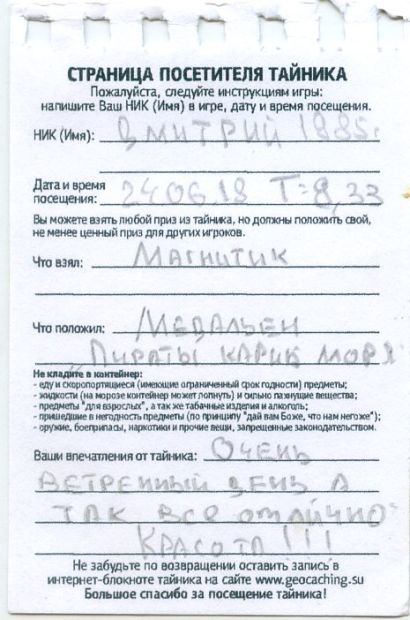 СТРАНИЦА ПОСЕТИТЕЛЯ ТАЙНИКА
Пожалуйста, следуйте инструкциям игры:
напишите Ваш НИК (Имя) в игре, дату и время посещения.
НИК (Имя): Дмитрий 1985г
Дата и время
посещения: 24.06.18 Т=8,33
Вы можете взять любой приз из тайника, но должны положить свой,
не менее ценный приз для других игроков.
Что взял: Магнитик
Что положил: Медальен
"Пираты Кариж моря
Не кладите в контейнер:
- еду и скоропортящиеся (имеющие ограниченный срок годности) предметы;
- жидкости (на морозе контейнер может лопнуть) и сильно пахнущие вещества;
- предметы "для взрослых", а так же табачные изделия и алкоголь;
- пришедшие в негодность предметы (по принципу "дай вам Боже, что нам негоже");
- оружие, боеприпасы, наркотики и прочие вещи, запрещенные законодательством.
Ваши впечатления от тайника: Очень
ветренный день а
так все отлично
Красота!!!
Не забудьте по возвращении оставить запись в
интернет-блокноте тайника на сайте www.geocaching.su
Большое спасибо за посещение тайника!